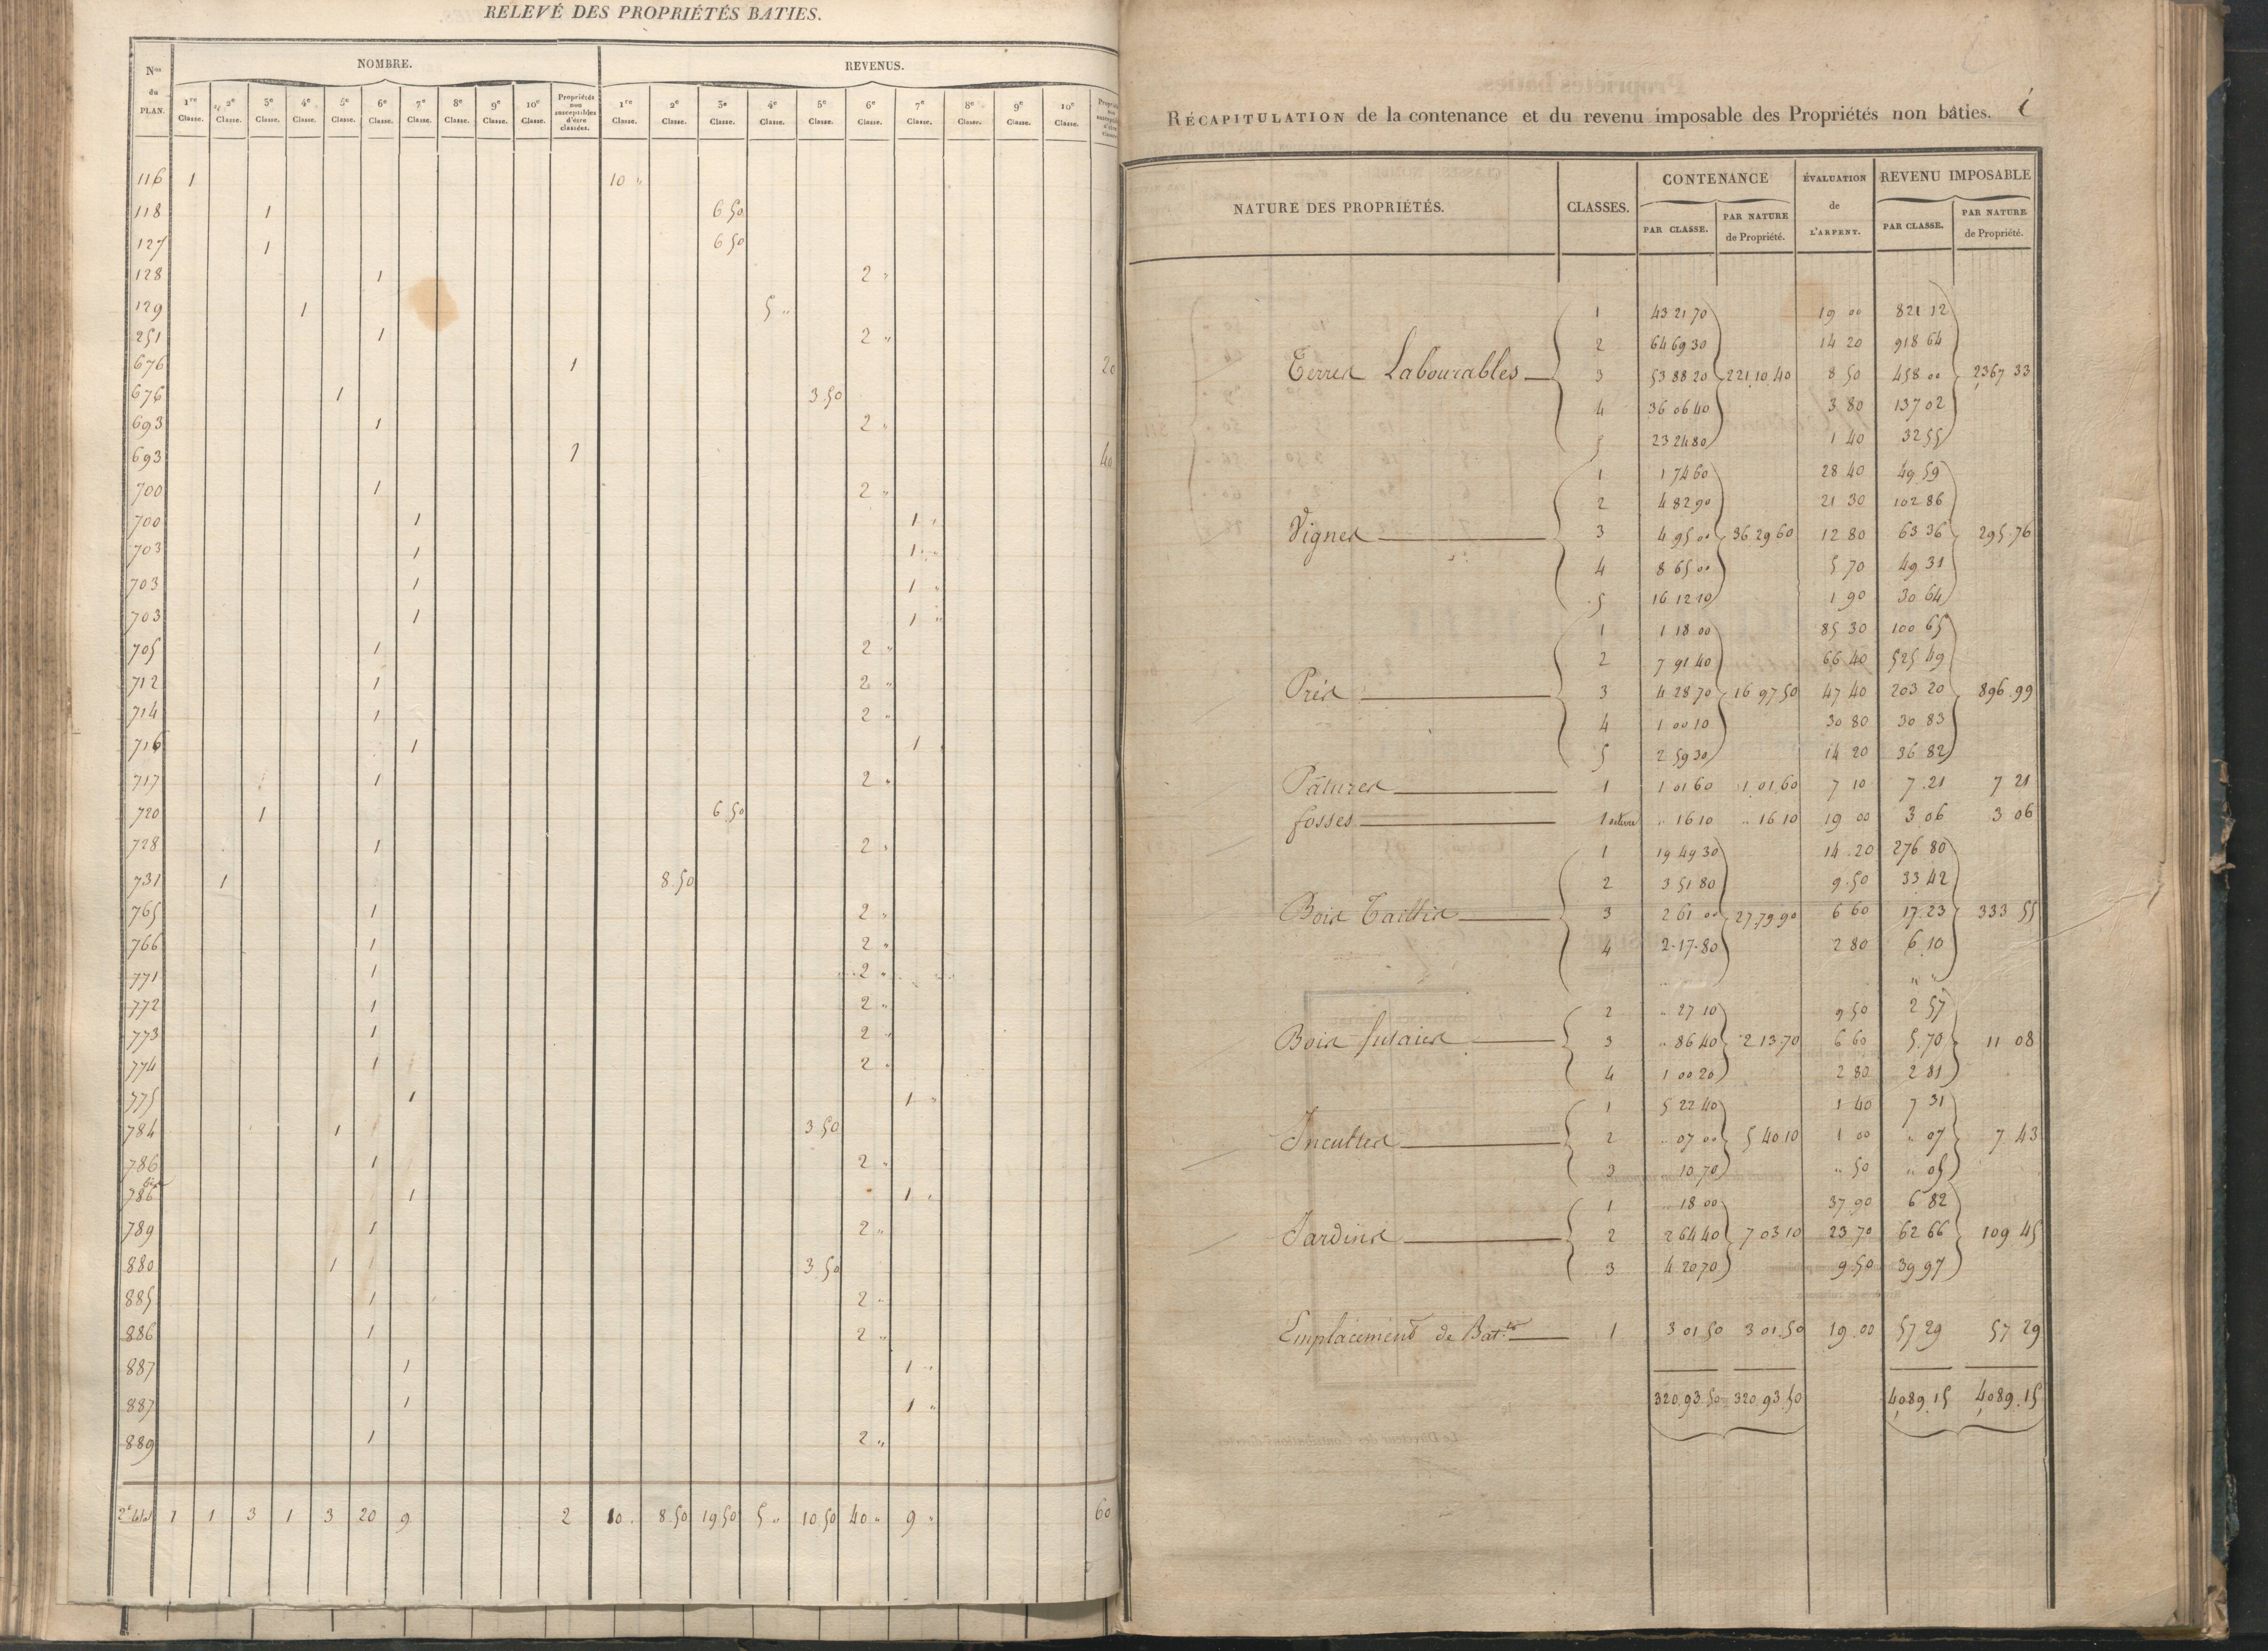 RELEVÉ DES PROPRIÉTÉS BATIES.
Nos du PLAN.
NOMBRE.
REVENUS.
1re Classe. 2e Classe. 3e Classe. 4e Classe. 5e Classe. 6e Classe. 7e Classe. 8e Classe. 9e Classe. 10e Classe. Propriétés non susceptibles d'être classées.
1re Classe. 2e Classe. 3e Classe. 4e Classe. 5e Classe. 6e Classe. 7e Classe. 8e Classe. 9e Classe. 10e Classe.
116 1 10 "
118 1 6 50
127 1 6 50
128 1 2 "
129 1 5 "
251 1 2 "
676 1 20
676 1 3.50
693 1 2 "
693 1 40
700 1 2 "
700 1 1 "
703 1 1 "
703 1 1 "
703 1 1 "
705 1 2 "
712 1 2 "
714 1 2 "
716 1 1 "
717 1 2 "
720 1 6.50
728 1 2 "
731 1 8.50
765 1 2 "
766 1 2 "
771 1 2 "
772 1 2 "
773 1 2 "
774 1 2 "
775 1 1 "
784 1 3.50
786 1 2 "
786 bis 1 1 "
789 1 2 "
880 1 3.50
885 1 2 "
886 1 2 "
887 1 1 "
887 1 1 "
889 1 2 "
2e total 1 1 3 1 3 20 9 2 10. 8.50 19.50 5 " 10.50 40 " 9 " 60
RÉCAPITULATION de la contenance et du revenu imposable des Propriétés non bâties.
NATURE DES PROPRIÉTÉS.
CLASSES.
CONTENANCE
PAR CLASSE.
PAR NATURE de Propriété.
ÉVALUATION de L'ARPENT.
REVENU IMPOSABLE
PAR CLASSE.
PAR NATURE de Propriété.
1 43 21 70 19 00 821 12
2 64 69 30 14 20 918 64
Terres Labourables 3 53 88 20 221.10.40 8 50 458 00 2367 33
4 36 06 40 3 80 137 02
5 23 24 80 1 40 32 55
1 1 74 60 28 40 49 59
2 4 82 90 21 30 102 86
Vignes 3 4 95 00 36.29 60 12 80 63 36 295.76
4 8 65 00 5 70 49 31
5 16 12 10 1 90 30 64
1 1 18 00 85 30 100 65
2 7 91 40 66 40 525 49
Prés 3 4 28 70 16 97 50 47 40 203 20 896.99
4 1 00 10 30 80 30 83
5 2 59 30 14 20 36 82
Pâtures 1 1 01 60 1 01 60 7 10 7.21 7 21
fosses 1 " 16 10 " 16 10 19 00 3 06 3 06
1 19 49 30 14.20 276 80
2 3 51 80 9.50 33 42
Bois Taillis 3 2 61 00 27.79.90 6 60 17.23 333 55
4 2.17.80 2 80 6.10
" "
2 " 27 10 9 50 2 57
Bois futaies 3 " 86 40 2 13.70 6 60 5.70 11 08
4 1 00 20 2 80 2 81
1 5 22 40 1 40 7 31
Incultes 2 " 07 00 5 40 10 1 00 " 07 7 43
3 10.70 " 50 " 05
1 " 18 00 37.90 6 82
Jardins 2 2 64 40 7 03 10 23.70 62 66 109 45
3 4 20 70 9.50 39 97
Emplacement de Bat.ts 1 3 01 50 3 01.50 19.00 57 29 57 29
320.93.50 320.93.50 4089.15 4089.15